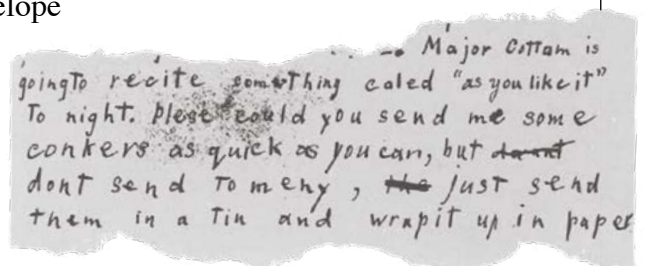 elope
Major Cottam is
going To recite something caled "as you like it"
To night. Plese could you send me some
conkers as quick as you can, but da̶n̶t̶
dont send To meny, t̶h̶e̶ just send
them in a Tin and wrapit up in paper